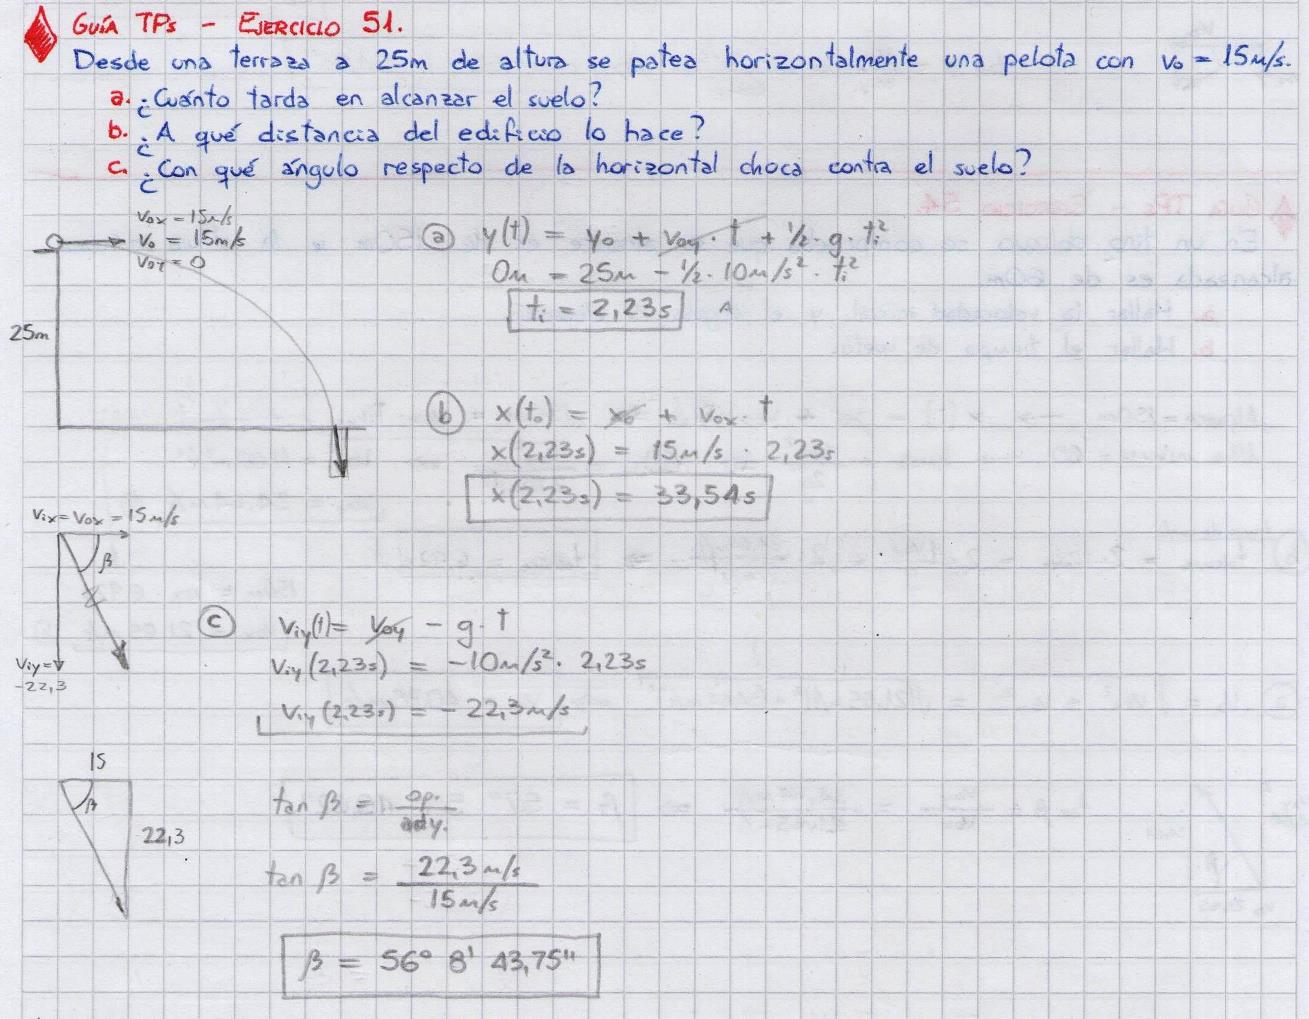 GUÍA TPs - EJERCICIO 51.
Desde una terraza a 25m de altura se patea horizontalmente una pelota con v₀ = 15m/s.
a. ¿Cuánto tarda en alcanzar el suelo?
b. ¿A qué distancia del edificio lo hace?
c. ¿Con qué ángulo respecto de la horizontal choca contra el suelo?
V₀ₓ = 15m/s
V₀ = 15m/s
V₀y = 0
25m
a y(t) = y₀ + v₀y · t + ½ · g · tᵢ²
0m = 25m - ½ · 10m/s² · tᵢ²
tᵢ = 2,23s
b x(t₀) = x₀ + v₀ₓ · t
x(2,23s) = 15m/s · 2,23s
x(2,23s) = 33,54s
Vᵢₓ = V₀ₓ = 15m/s
β
Vᵢy =
-22,3
c Vᵢy(t) = V₀y - g · t
Vᵢy(2,23s) = -10m/s² · 2,23s
Vᵢy(2,23s) = -22,3m/s
15
β
22,3
tan β = op. / ady.
tan β = 22,3m/s / 15m/s
β = 56° 8' 43,75"